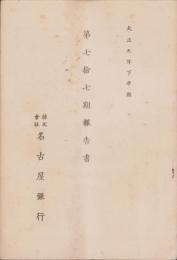 大正九年下半期
第七拾七期報告書
株式
會社 名古屋銀行